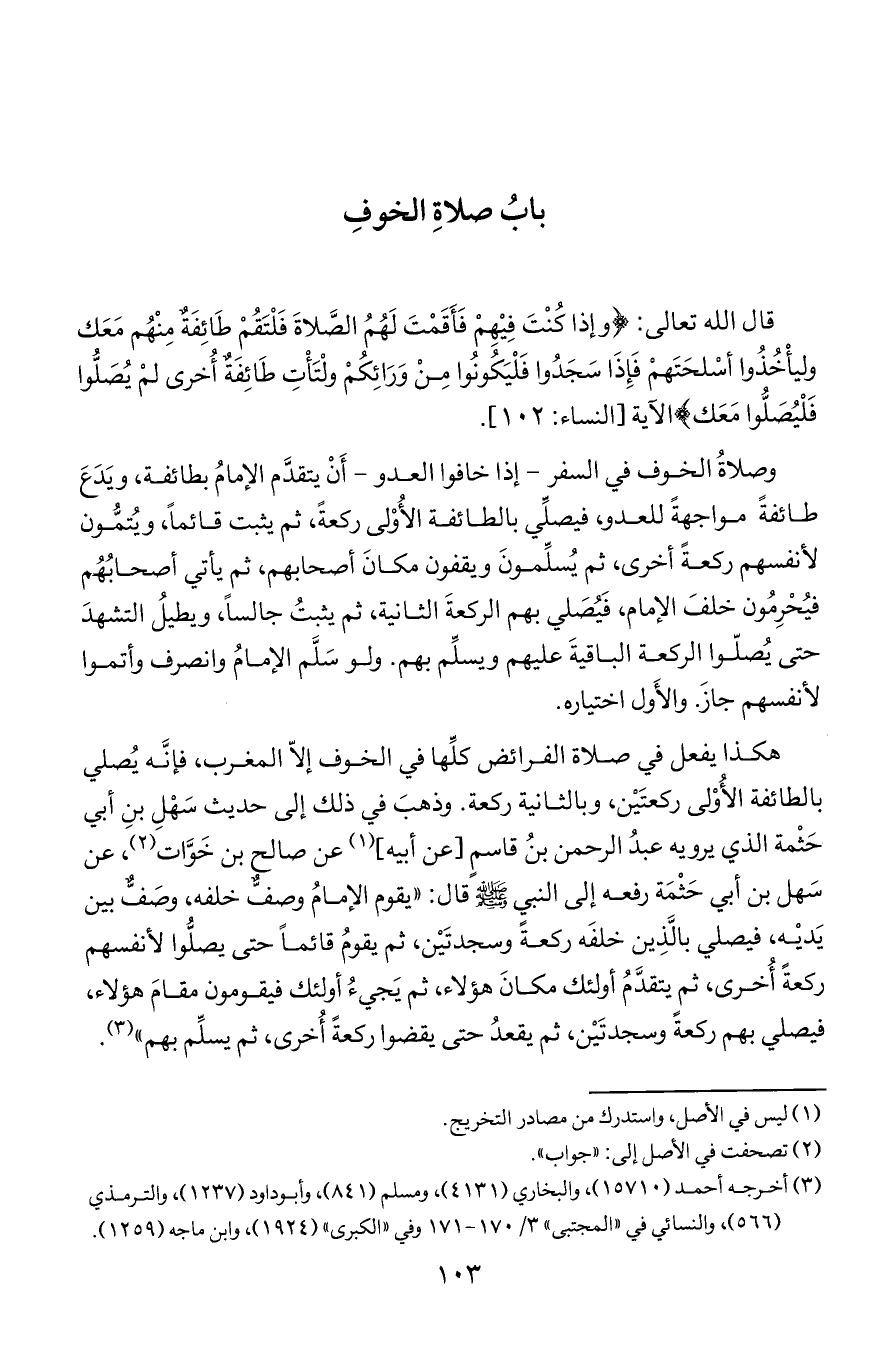 بابُ صلاةِ الخوفِ
قال الله تعالى: ﴿وإذا كُنْتَ فِيْهِمْ فَأَقَمْتَ لَهُمُ الصَّلاةَ فَلْتَقُمْ طَائِفَةٌ مِنْهُم مَعَك
وليأْخُذُوا أسْلحَتَهمْ فَإِذَا سَجَدُوا فَلْيَكُونُوا مِـنْ وَرَائِكُمْ ولْتَأْتِ طَائِفَةٌ أُخرى لمْ يُصَلُّوا
فَلْيُصَلُّوا مَعَك﴾الآية [النساء: ١٠٢].
وصلاةُ الخـوف في السفر - إذا خافوا العـدو - أَنْ يتقدَّم الإمامُ بطائفـة، ويَدَعَ
طـائفةً مـواجهةً للعـدو، فيصلِّي بالطـائفـة الأُوْلى ركعةً، ثم يثبت قـائمـاً، ويُتمُّـون
لأنفسهم ركعـةً أخرى، ثم يُسلِّمـونَ ويقفون مكـانَ أصحابهم، ثم يأتي أصحـابُهُم
فيُحْرِمُون خلفَ الإمام، فَيُصَلي بهم الركعةَ الثـانية، ثم يثبتُ جالساً، ويطيلُ التشهدَ
حتى يُصلّـوا الركعـة البـاقيةَ عليهم ويسلِّم بهم. ولـو سَلَّم الإمـامُ وانصرف وأتمـوا
لأنفسهم جازَ. والأَول اختياره.
هكـذا يفعل في صـلاة الفـرائض كلِّها في الخـوف إلاّ المغـرب، فإنَّـه يُصلي
بالطائفة الأُوْلى ركعتَيْن، وبالثـانية ركعة. وذهبَ في ذلك إلى حديث سَهْلِ بنِ أبي
حَثْمة الذي يرويه عبدُ الرحمن بنُ قاسمٍ [عن أبيه](١) عن صالح بن خَوَّات(٢)، عن
سَهل بن أبي حَثْمَة رفعـه إلى النبي ﷺ قال: «يقوم الإمـامُ وصفٌّ خلفه، وصَفٌّ بين
يَديْـه، فيصلي بالَّذِين خلفَه ركعـةً وسجدتَيْن، ثم يقومُ قائمـاً حتى يصلُّوا لأنفسهم
ركعةً أُخـرى، ثم يتقدَّمُ أولئك مكـانَ هؤلاء، ثم يَجيءُ أولئك فيقـومون مقـامَ هؤلاء،
فيصلي بهم ركعةً وسجدتَيْن، ثم يقعدُ حتى يقضوا ركعةً أُخرى، ثم يسلِّم بهم»(٣).
(١) ليس في الأصل، واستدرك من مصادر التخريج.
(٢) تصحفت في الأصل إلى: «جواب».
(٣) أخـرجـه أحمـد (١٥٧١٠)، والبخاري (٤١٣١)، ومسلم (٨٤١)، وأبـوداود (١٢٣٧)، والتـرمـذي
(٥٦٦)، والنسائي في «المجتبى» ٣/ ١٧٠-١٧١ وفي «الكبرى» (١٩٢٤)، وابن ماجه (١٢٥٩).
١٠٣